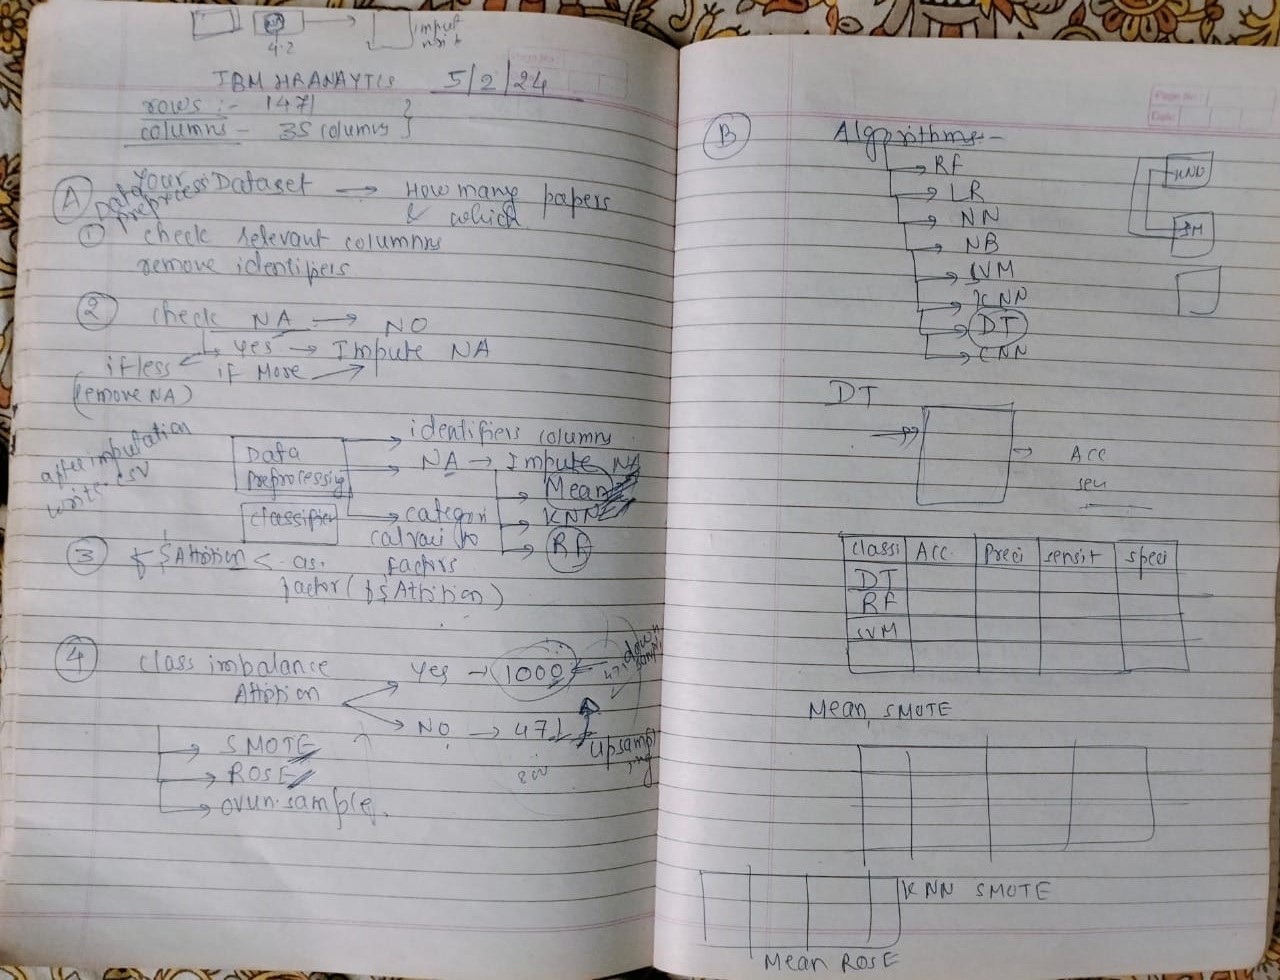 4.2
input
IBM HR ANAYTICS 5/2/24
rows :- 1471
columns - 35 columns
A Data Preprocess
Your Dataset → How many papers
& which
① check relevant columns
remove identifiers
② check NA → NO
Yes → Impute NA
if less if More
(remove NA)
after imputation
write csv
Data
Preprocessing
identifiers columns
NA → Impute NA
Mean
KNN
RF
classifier
categori
cal
factors
③ $Attrition < as.
factor($Attrition)
④ class imbalance
Attrition
Yes → 1000
down
sampl
NO → 471
upsampl
ing
SMOTE
ROSE
ovun.sample
Page No.
Date
B Algorithms-
RF
LR
NN
NB
SVM
KNN
DT
CNN
KNN
DT
Acc
sen
classi Acc Preci sensit speci
DT
RF
SVM
Mean, SMOTE
KNN SMOTE
Mean ROSE